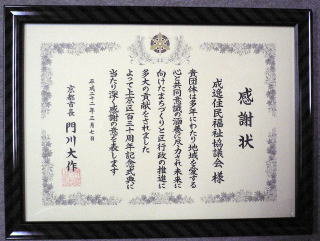 感謝状
成逸住民福祉協議会 様
貴団体は多年にわたり地域を愛する
心と共同意識の涵養に尽力され未来に
向けたまちづくりと区行政の推進に
多大の貢献をされました
よって上京区百三十周年記念式典に
当たり深く感謝の意を表します
平成二十二年三月七日
京都市長 門川大作